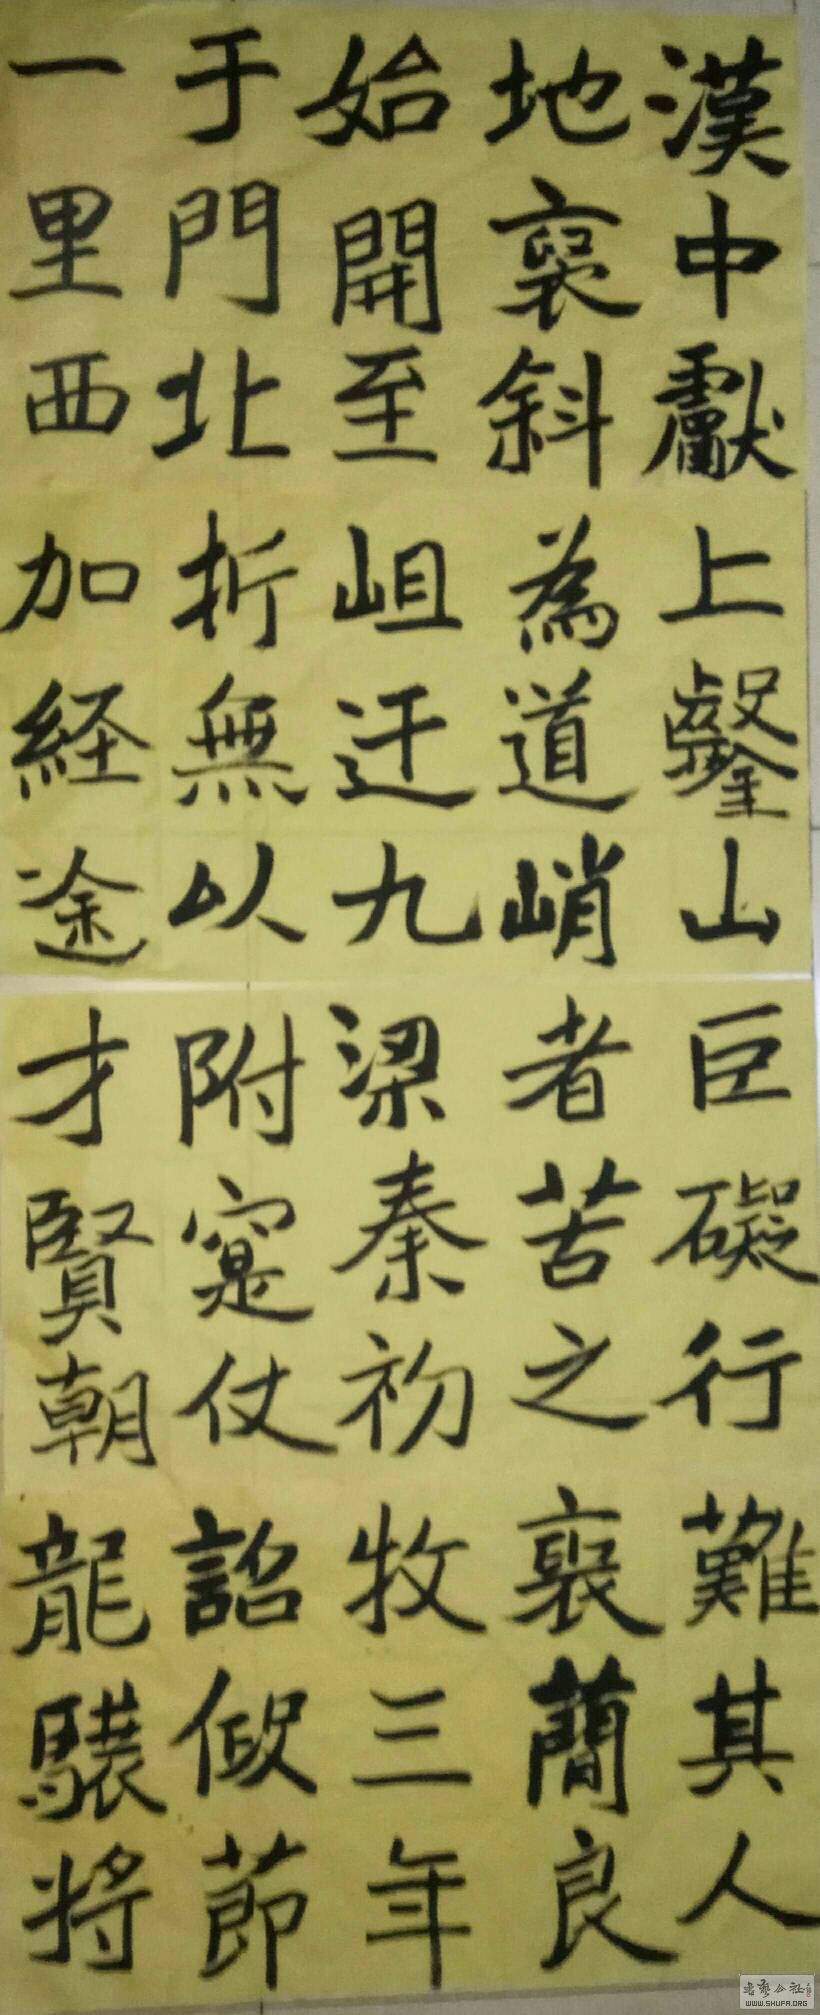 漢中獻上鑿山巨礙行難其人
地褒斜為道峭者苦之褒蕳良
始開至岨迂九梁秦初牧三年
于門北折無以附寔仗詔假節
一里西加経途才賢朝龍驤将
書藝公社
WWW.SHUFA.ORG